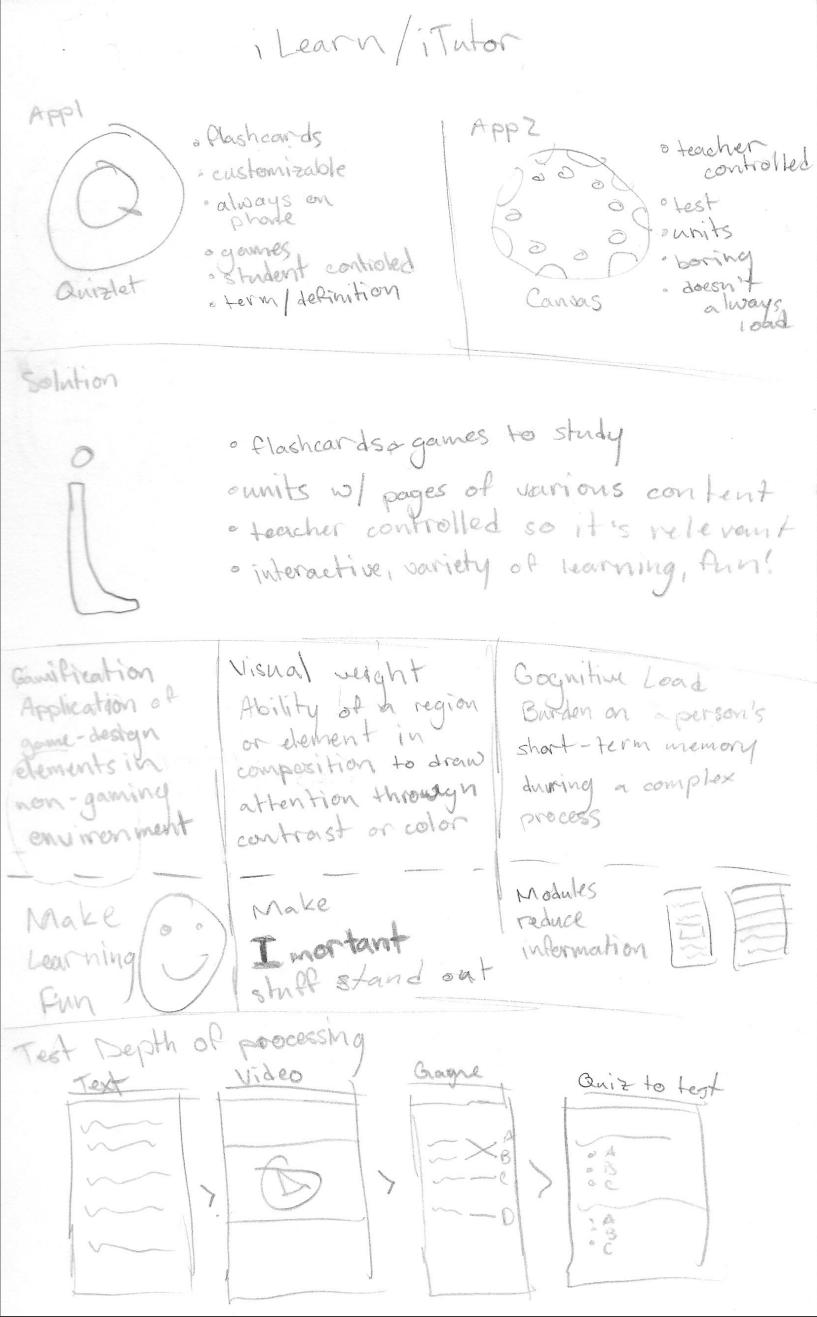 iLearn/iTutor
App1
Q
Quizlet
• flashcards
• customizable
• always on
phone
• games
• student controlled
• term/definition
App2
Canvas
• teacher
controlled
• test
• units
• boring
• doesn't
always
load
Solution
i
• flashcards & games to study
• units w/ pages of various content
• teacher controlled so it's relevant
• interactive, variety of learning, fun!
Gamification
Application of
game-design
elements in
non-gaming
environment
Make
Learning
Fun
Visual weight
Ability of a region
or element in
composition to draw
attention through
contrast or color
Make
Imortant
stuff stand out
Cognitive Load
Burden on a person's
short-term memory
during a complex
process
Modules
reduce
information
Test Depth of processing
Text
Video
>
>
>
A
B
C
D
Quiz to test
• A
• B
• C
• A
B
• C